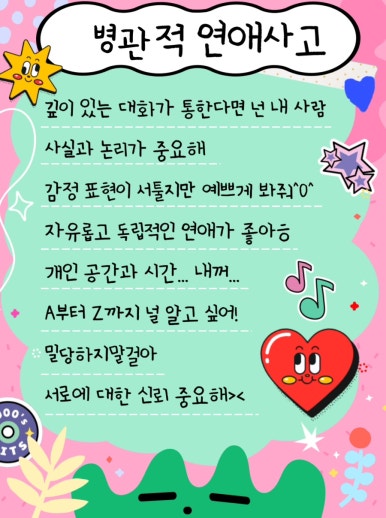 병관적 연애사고
깊이 있는 대화가 통한다면 넌 내 사람
사실과 논리가 중요해
감정 표현이 서툴지만 예쁘게 봐줘^0^
자유롭고 독립적인 연애가 좋아ㅎ
개인 공간과 시간... 내꺼...
A부터 Z까지 널 알고 싶어!
밀당하지말걸아
서로에 대한 신뢰 중요해><
000's
ITS